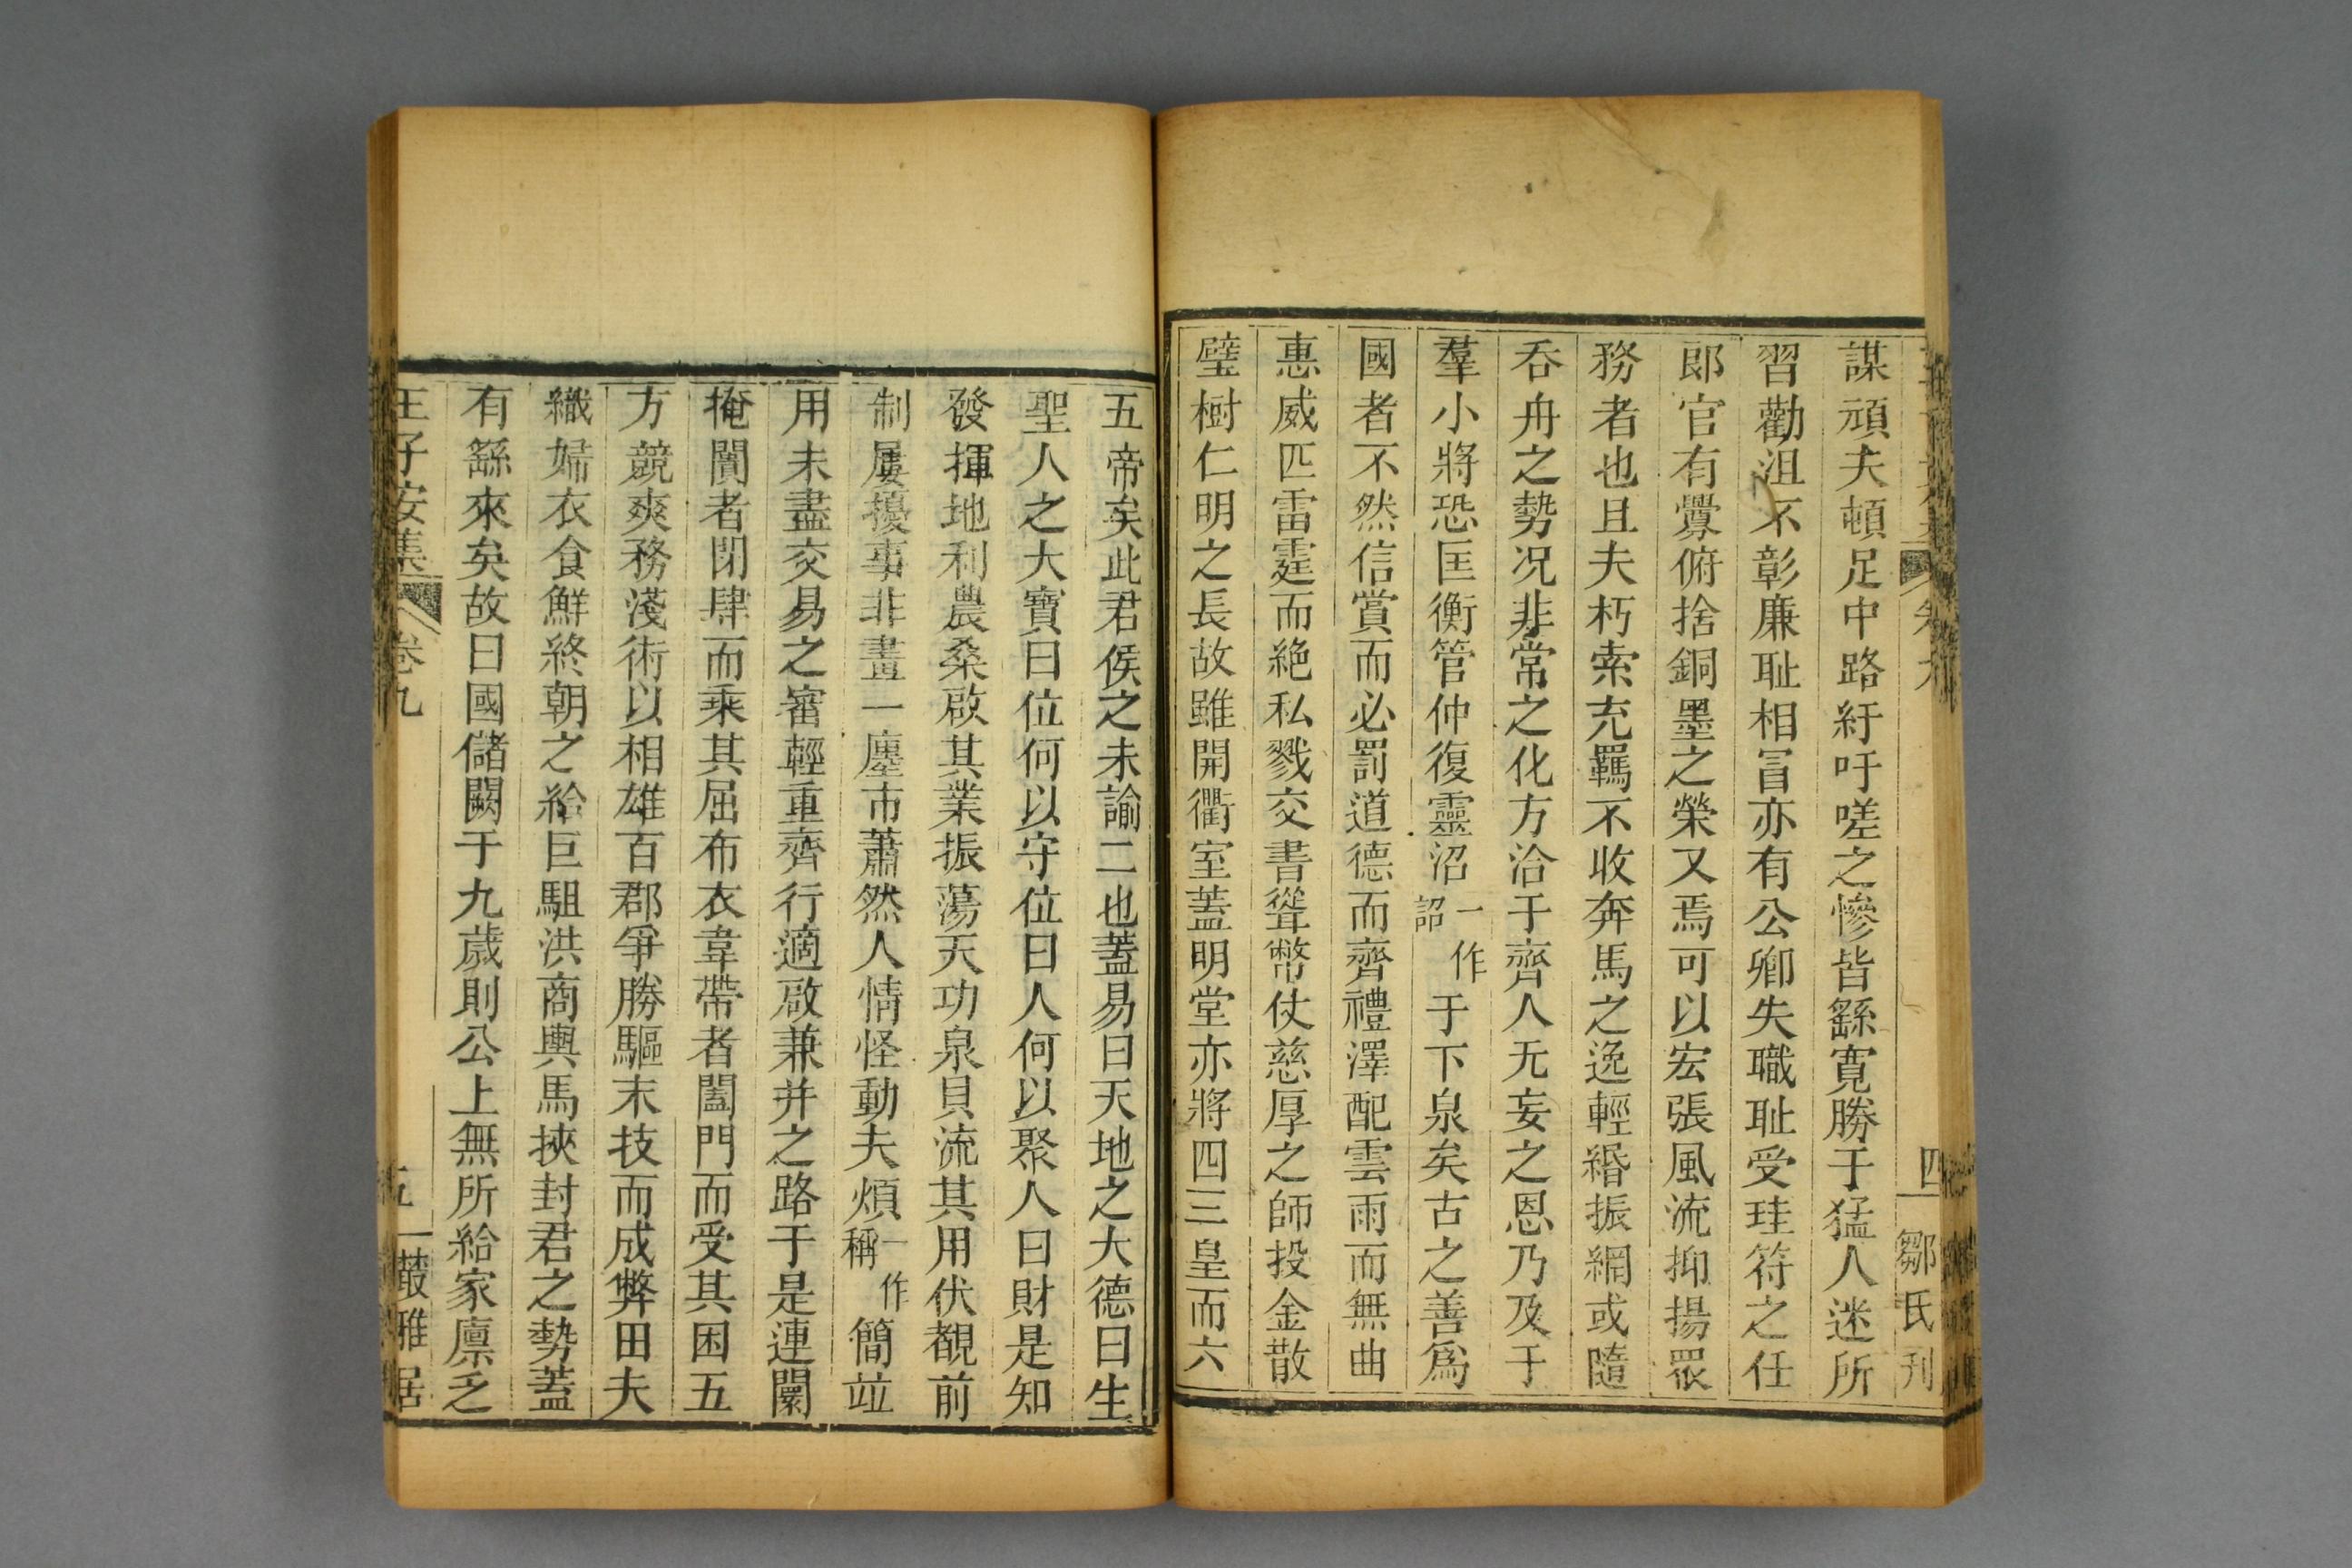 謀頑夫頓足中路紆吁嗟之慘皆繇寛勝于猛人迷所
習勸沮不彰廉耻相冒亦有公卿失職耻受珪符之任
郞官有釁俯捨銅墨之榮又焉可以宏張風流抑揚衆
務者也且夫朽索充羈不收奔馬之逸輕緡振網或隨
呑舟之勢况非常之化方洽于齊人无妄之恩乃及于
羣小將恐匡衡管仲復靈沼一作詔于下泉矣古之善爲
國者不然信賞而必罰道德而齊禮澤配雲雨而無曲
惠威匹雷霆而絶私戮交書聳幣仗慈厚之師投金散
璧樹仁明之長故雖開衢室蓋明堂亦將四三皇而六
五帝矣此君侯之未諭二也蓋易曰天地之大德曰生
聖人之大寶曰位何以守位曰人何以聚人曰財是知
發揮地利農桑啟其業振蕩天功泉貝流其用伏覩前
制屢擾事非畫一廛市蕭然人情怪動夫煩一作稱簡竝
用未盡交易之審輕重齊行適啟兼并之路于是連闤
掩闠者閉肆而乘其屈布衣韋帶者闔門而受其困五
方競爽務淺術以相雄百郡爭勝驅末技而成弊田夫
織婦衣食鮮終朝之給巨駔洪商輿馬挾封君之勢蓋
有繇來矣故曰國儲闕于九歲則公上無所給家廪乏
王子安集 卷九 五 叢雅居
卷九 四 鄒氏刊